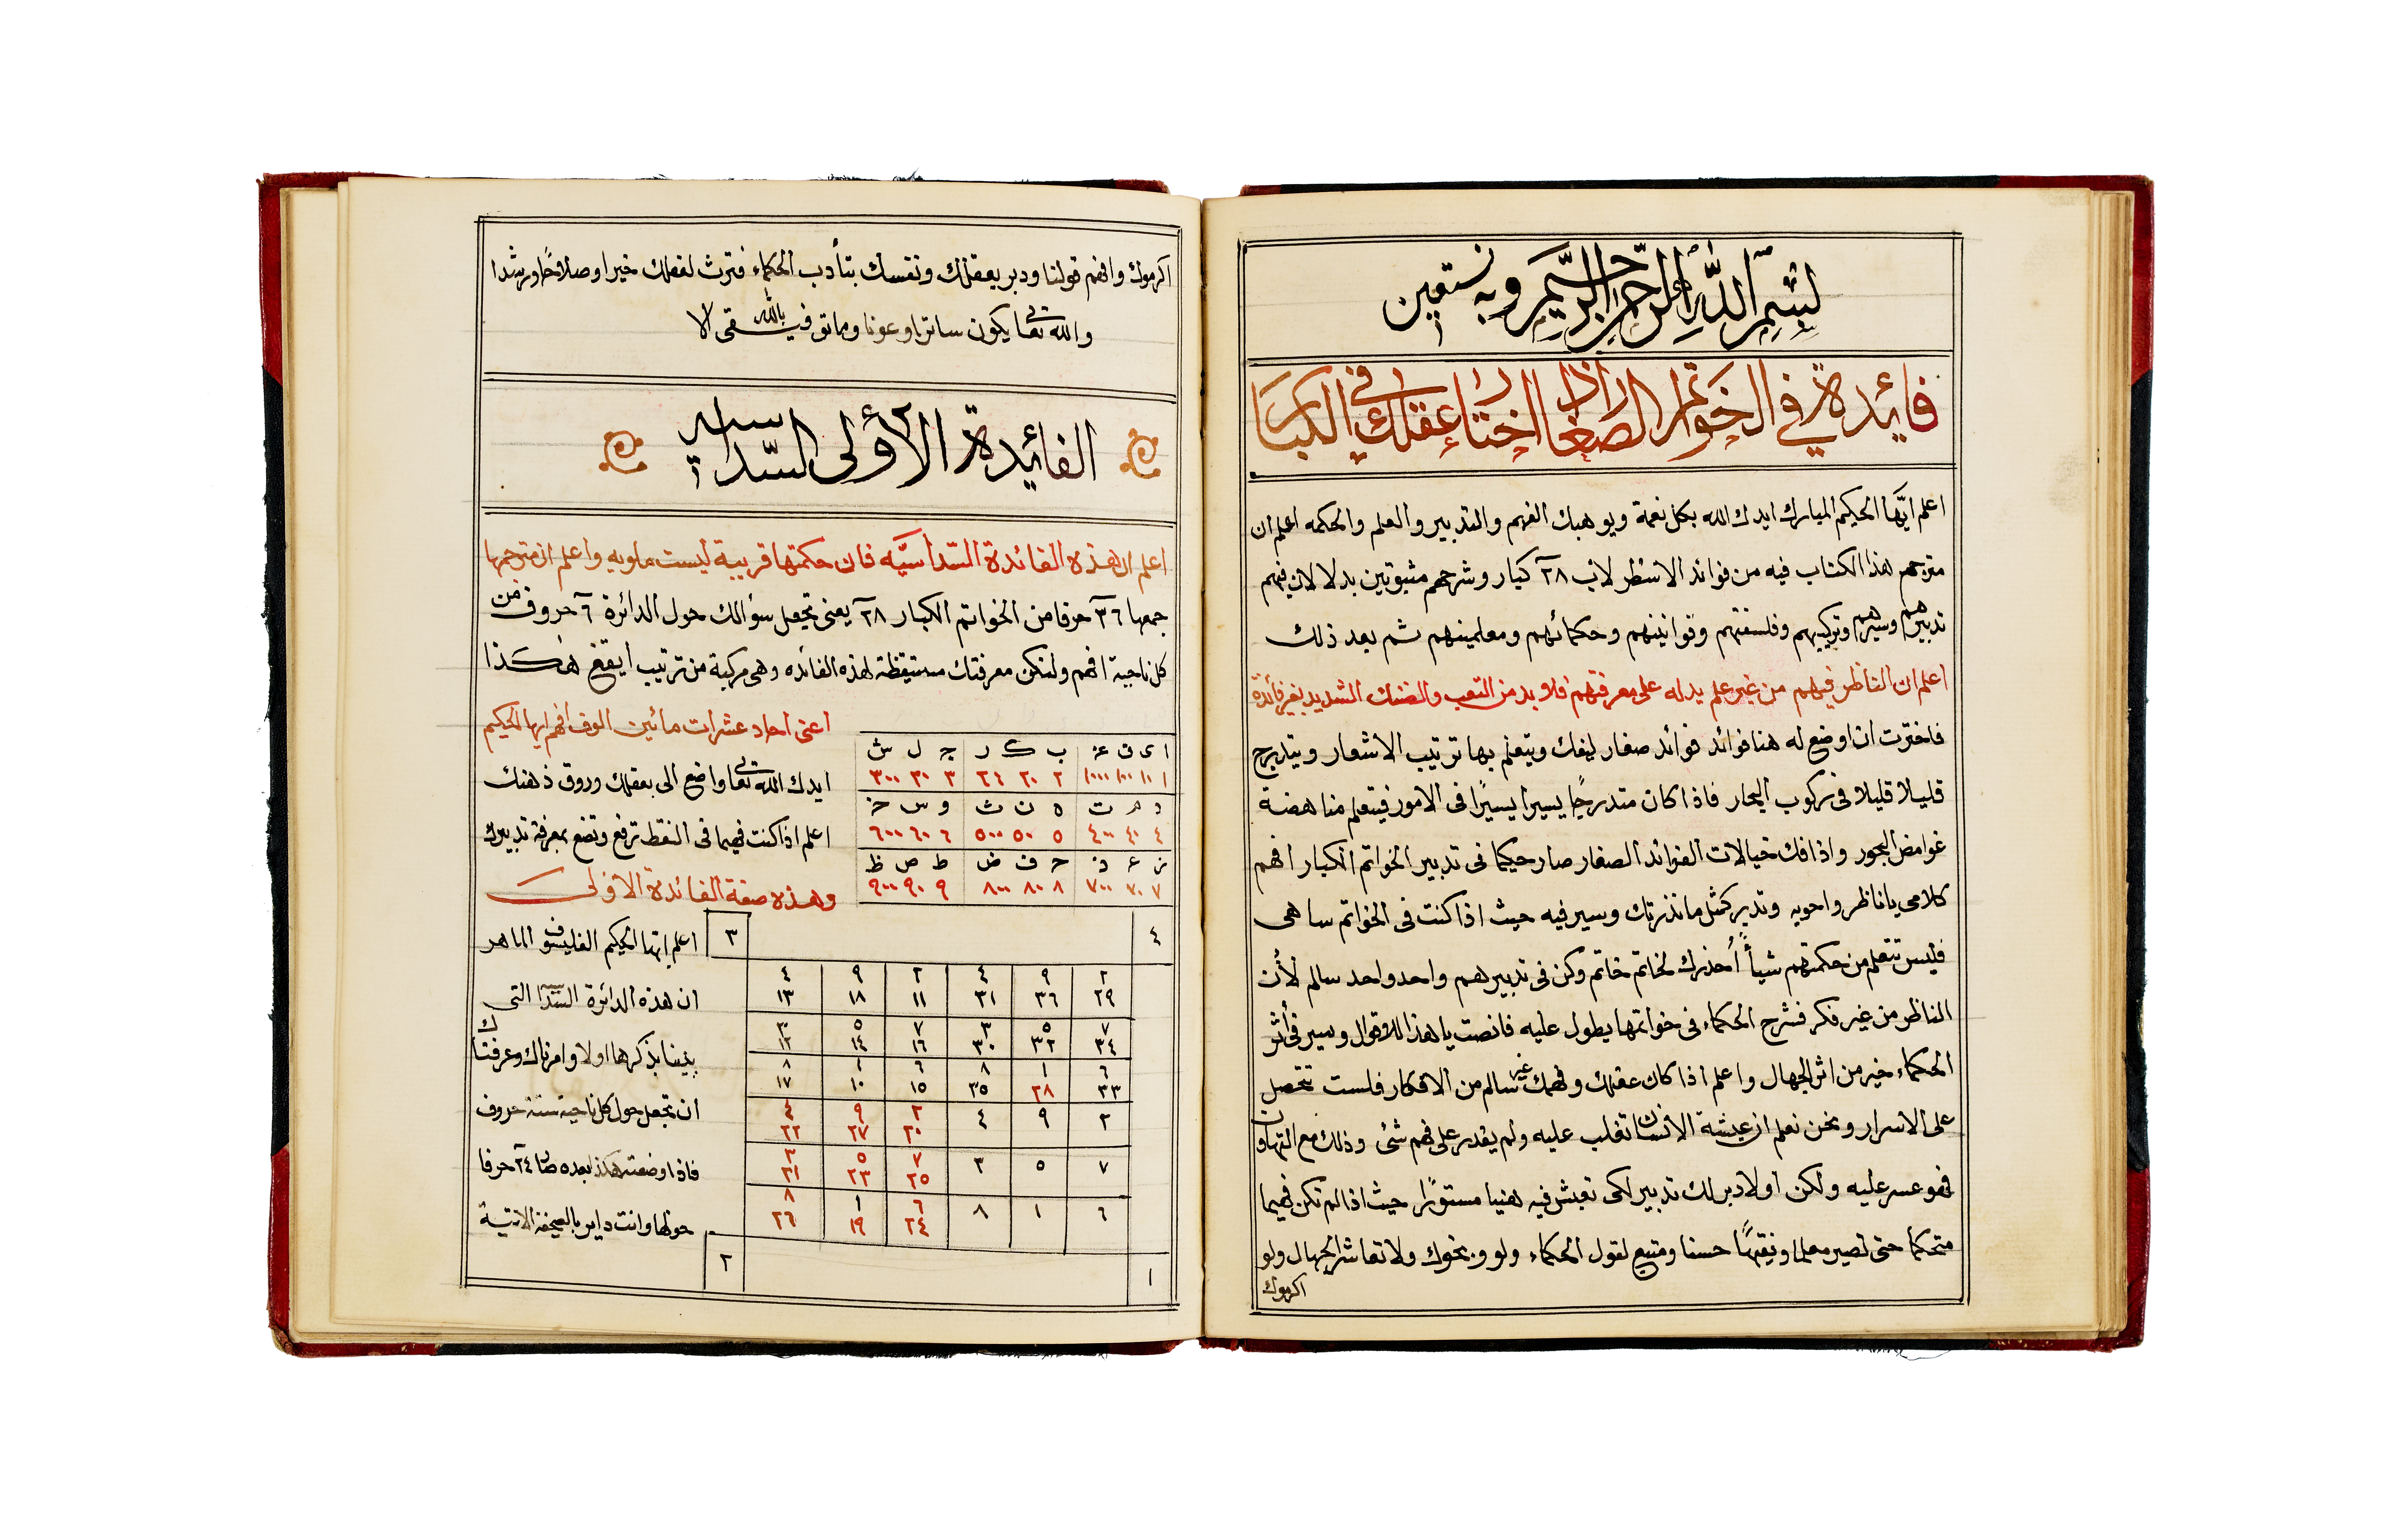 بسم الله الرحمن الرحيم وبه نستعين
فائيدة في الخواتم الصغار اذا اختار عقلك في الكبار
اعلم ايها الحكيم المبارك ايدك الله بكل نعمة ويوهبك الفهم والتدبير والعلم والحكمه اعلم ان
مترجم هذا الكتاب فيه من فوائد الاسطرلاب ٢٨ كبار وشرحهم مثبوتين بدلالان فيهم
تدبيرهم وسيرهم وتركيبهم وفلسفتهم وقوانينهم وحكمائهم ومعلمينهم ثم بعد ذلك
اعلم ان الناظر فيهم من غير علم يدله على معرفتهم فلا وبد من التعب والضنك الشديد بغير فأئدة
فاخترت ان اوضع له هنا فوائد فوائد صغار ليفك ويتعلم بها ترتيب الاشعار ويتدرج
قليلا قليلا في ركوب البحار فاذا كان متدرجًا يسيرا يسيرًا في الامور فيتعلم مناهضة
غوامض البحور واذا فك خيالات الفوائد الصغار صار حكيما في تدبير الخواتم الكبار افهم
كلامى يا ناظر واحويه وتدبر كمثل ما نذرتك وسير فيه حيث اذا كنت في الخواتم ساهى
فليس تتعلم من حكمتهم شيأً أحذرك لخاتم خاتم وكن في تدبيرهم واحد واحد سالم لأن
الناظر من غير فكر فشرح الحكماء في خواتمها يطول عليه فانصت يا هذا للاقوال وسير في أثر
الحكماء خير من اثر الجهال واعلم اذا كان عقلك وفهمك غير سالم من الافكار فلست تتحصل
على الاسرار ونحن نعلم ان عيشة الانسان تغلب عليه ولم يقدر على فهم شئ وذلك مع التهاون
فهو عسر عليه ولكن اولا دبر لك تدبير لكى تعيش فيه هنيا مستورًا حيث اذا لم تكن فهيما
متحكما حتى تصير معلما وفقيهًا حسنا ومتبع لقول الحكماء ولو وبخوك ولا تعاشر الجهال ولو
اكرموك
اكرموك وافهم قولنا ودبر بعقلك ونفسك بتأدب الحكماء فترث لفعلك خيرا وصلاحًا ورشدا
والله تعالى يكون ساترا وعونا وما توفيقى الا بالله
الفائيدة الأولى السداسيه
اعلم ان هذه الفائدة السداسيّه فان حكمتها قريبة ليست ملويه واعلم ان مترجمها
جمعها ٣٦ حرفا من الخواتم الكبار ٢٨ يعنى تجعل سؤالك حول الدائرة ٦ حروف من
كل ناحية افهم ولتكن معرفتك مستيقظة لهذه الفائده وهى مركبة من ترتيب ايقغ هكذا
اعنى احاد عشرات مائين الوف افهم ايها الحكيم
ايدك الله تعالى واضع الى بعقلك وروق ذهنك
اعلم اذا كنت فهيما فى النقط ترفع وتضع بمعرفة تدبيرك
وهذه صفة الفائدة الاولى
ا ى ق غ ب ك ر ج ل ش
١ ١٠ ١٠٠ ١٠٠٠ ٢ ٢٠ ٢٤ ٣ ٣٠ ٣٠٠
د م ت ه ن ث و س خ
٤ ٤٠ ٤٠٠ ٥ ٥٠ ٥٠٠ ٦ ٦٠ ٦٠٠
ز ع ذ ح ف ض ط ص ظ
٧ ٧٠ ٧٠٠ ٨ ٨٠ ٨٠٠ ٩ ٩٠ ٩٠٠
٤ ٣
٢ ٩ ٤ ٢ ٩ ٤
٢٩ ٣٦ ٣١ ١١ ١٨ ١٣
٧ ٥ ٣ ٧ ٥ ٣
٣٤ ٣٢ ٣٠ ١٦ ١٤ ١٢
٦ ١ ٨ ٦ ١ ٨
٣٣ ٢٨ ٣٥ ١٥ ١٠ ١٧
٢ ٩ ٤ ٢ ٩ ٤
٢٠ ٢٧ ٢٢
٧ ٥ ٣ ٧ ٥ ٣
٢٥ ٢٣ ٢١
٦ ١ ٨ ٦ ١ ٨
٢٤ ١٩ ٢٦
١ ٢
اعلم ايها الحكيم الفليسوف الماهر
ان هذه الدائرة السداسية التى
بدينا بذكرها اولا وامرناك وعرفناك
ان تجعل حول كل ناحية ستة حروف
فاذا وضعت هكذا بعده صار ٢٤ حرفا
حولها وانت داير بالصحفة الاتية